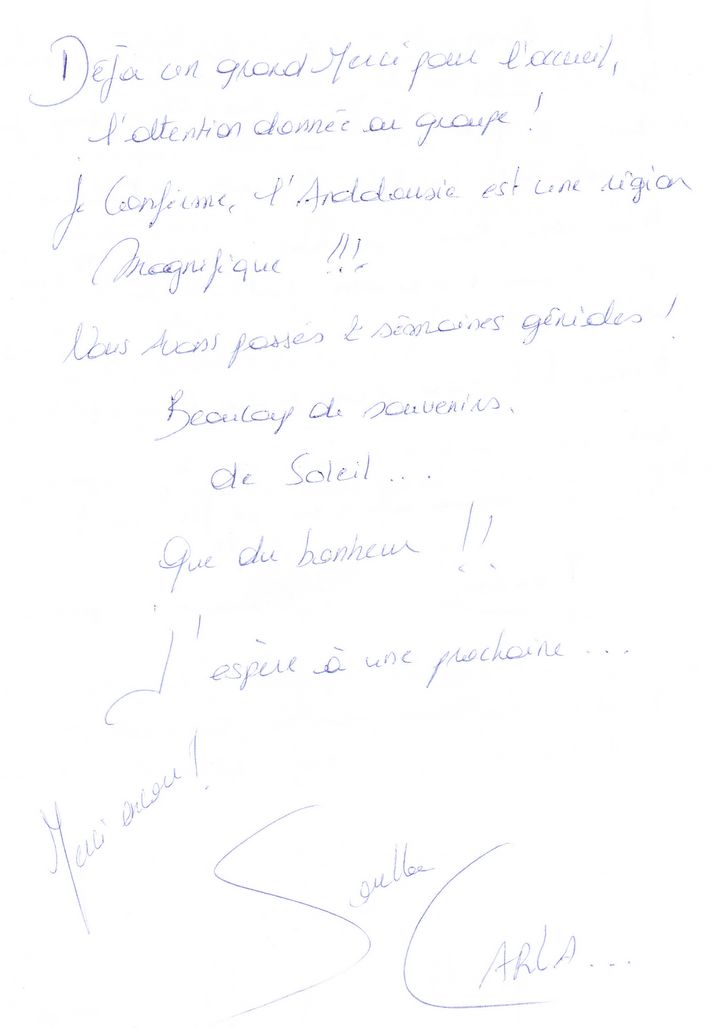 Déjà un grand Merci pour l'accueil,
l'attention donnée au groupe !
Je Confirme, l'Anddousie est une région
Magnifique !!!
Nous avons passés 2 semaines géniales !
Beaucoup de souvenirs.
de Soleil...
Que du bonheur !!
J'espère à une prochaine...
Merci encore !
CARLA...